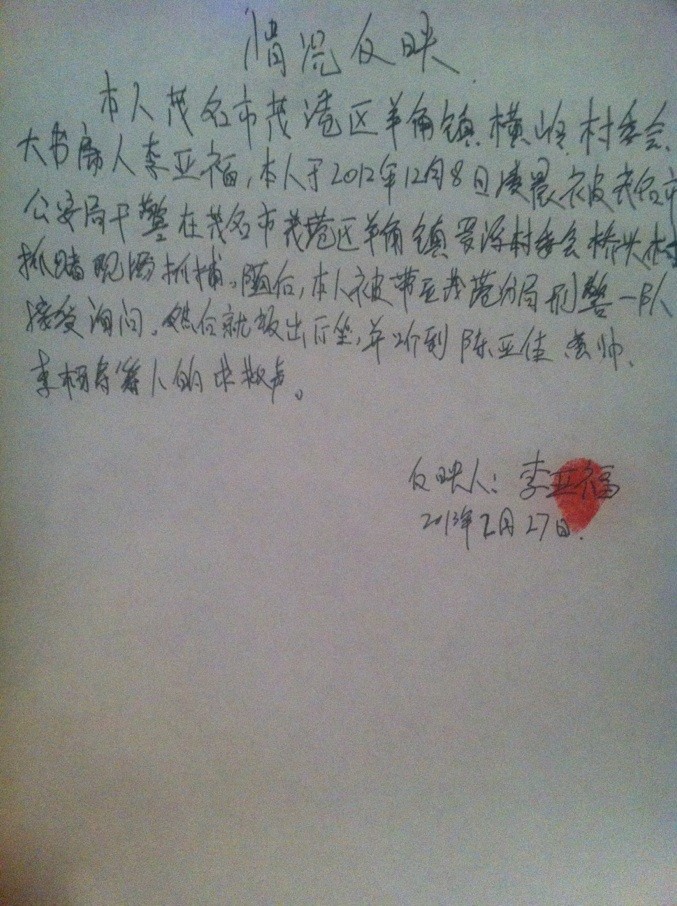 情况反映
本人茂名市茂港区羊角镇横岭村委会
大书房人李亚福,本人于2012年12月8日凌晨被茂名市
公安局干警在茂名市茂港区羊角镇 村委会桥头村
抓赌现场抓捕。随后,本人被带至茂港分局刑警一队
接受询问。然后就 出后 ,并听到陈亚佳、 帅、
李 等人的 声。
反映人:李亚福
2013年2月27日.